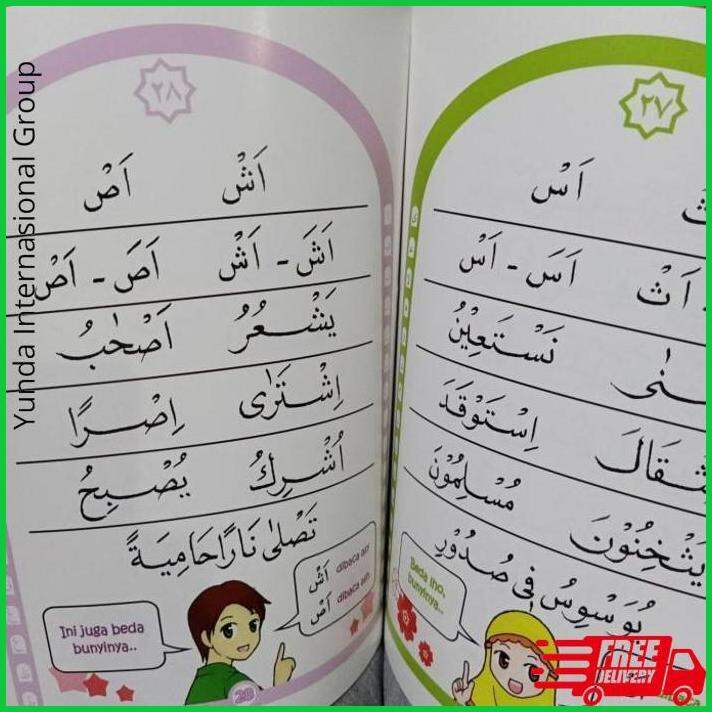 Yunda Internasional Group
٢٧
اَسْ
اَثْ اَسَ - اَسْ
نَسْتَعِيْنُ
اِسْتَوْقَدَ
يَثْخِنُوْنَ مُسْلِمُوْنَ
يُوَسْوِسُ فِى صُدُوْرِ
Beda lho,
bunyinya...
٢٨
اَشْ اَصْ
اَشَ - اَشْ اَصَ - اَصْ
يَشْعُرُ اَصْحٰبُ
اِشْتَرٰى اِصْرًا
اُشْرِكُ يُصْبِحُ
تَصْلٰى نَارًا حَامِيَةً
اَشْ dibaca
اَصْ dibaca
Ini juga beda
bunyinya..
28
FREE
DELIVERY